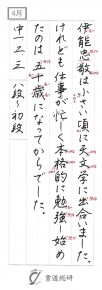 4月
伊能忠敬は小さい頃に天文学に出合いました。
けれども仕事が忙しく本格的に勉強し始め
たのは五十歳になってからでした。
中一二三 八段~初段
書道総研